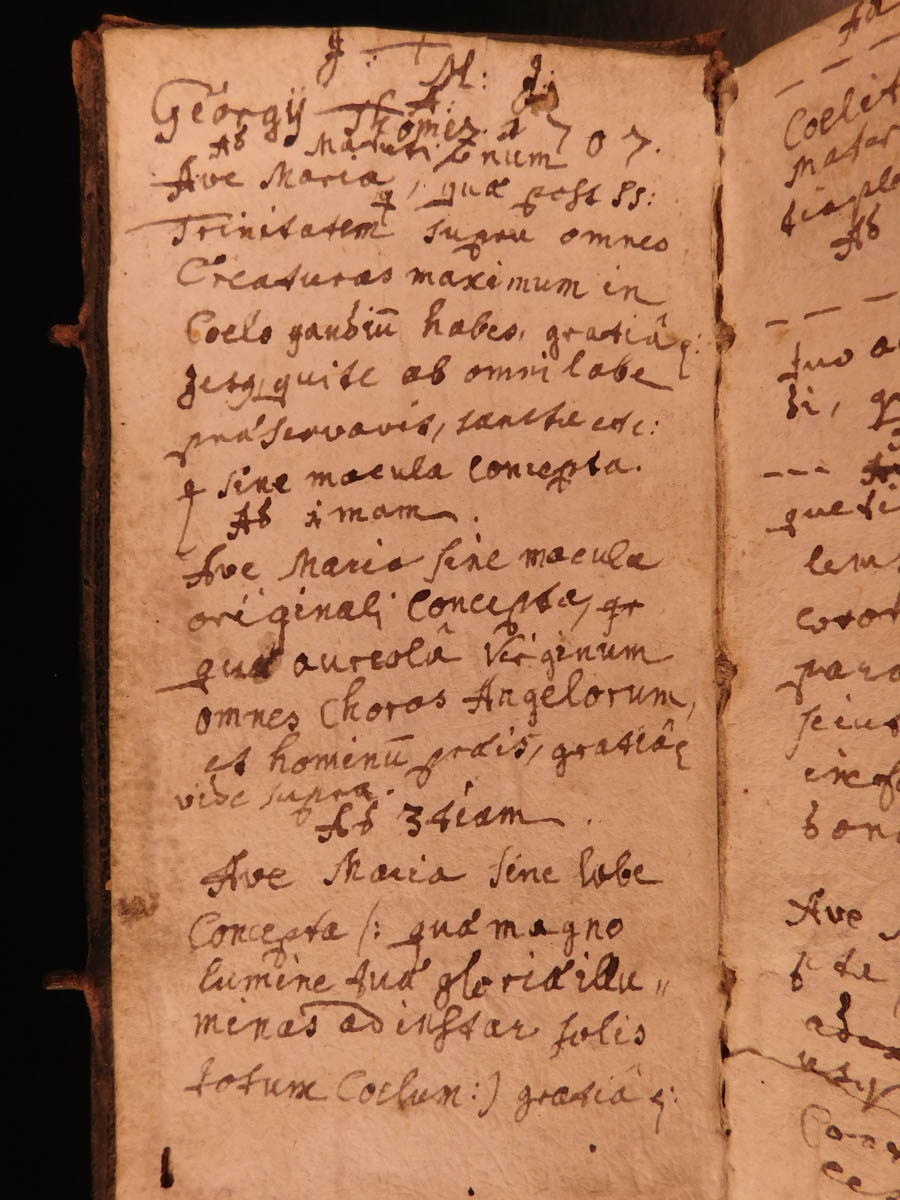 J. + M: J:
Georgy Thomez. A: 1707.
Ab Matutinum
Ave Maria, quæ post SS:
Trinitatem supra omnes
Creaturas maximum in
Coelo gaudiū habes, gratiâ
qui te ab omni labe
præservavit, sancta etc:
sine macula Concepta.
Ad 1mam.
Ave Maria sine macula
originali Concepta,
quæ aureolâ Virginum
omnes Choros Angelorum,
et hominū præis, gratiâ
vide supra.
Ad 3tiam.
Ave Maria sine labe
Concepta /: quæ magno
lumine tuæ gloriæ illu„
minas ad instar solis
totum Coelum :) gratiâ
Coelit
mater
Ad
quo
di, q
que ti
lem
coron
para
bona
Ave
te
Conce